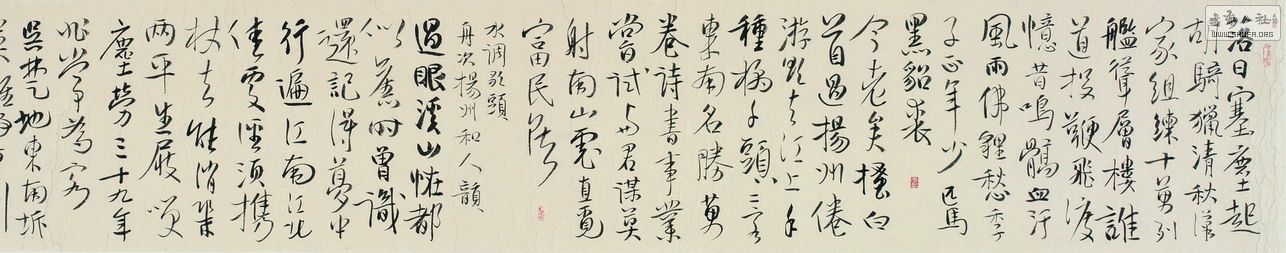 落日塞塵起
胡騎獵清秋漢
家組練十萬列
艦聳層樓誰
道投鞭飛渡
憶昔鳴髇血汙
風雨佛貍愁季
子正年少匹馬
黑貂裘
今老矣搔白
首過揚州倦
游欲去江上手
種橘千頭二客
東南名勝萬
卷詩書事業
嘗試與君謀莫
射南山虎直覓
富民侯
水調歌頭
舟次揚州和人韻
過眼溪山怪都
似舊時曾識
還記得夢中
行遍江南江北
佳處徑須攜
杖去能消幾
兩平生屐笑
塵勞三十九年
非常為客
吳楚地東南坼